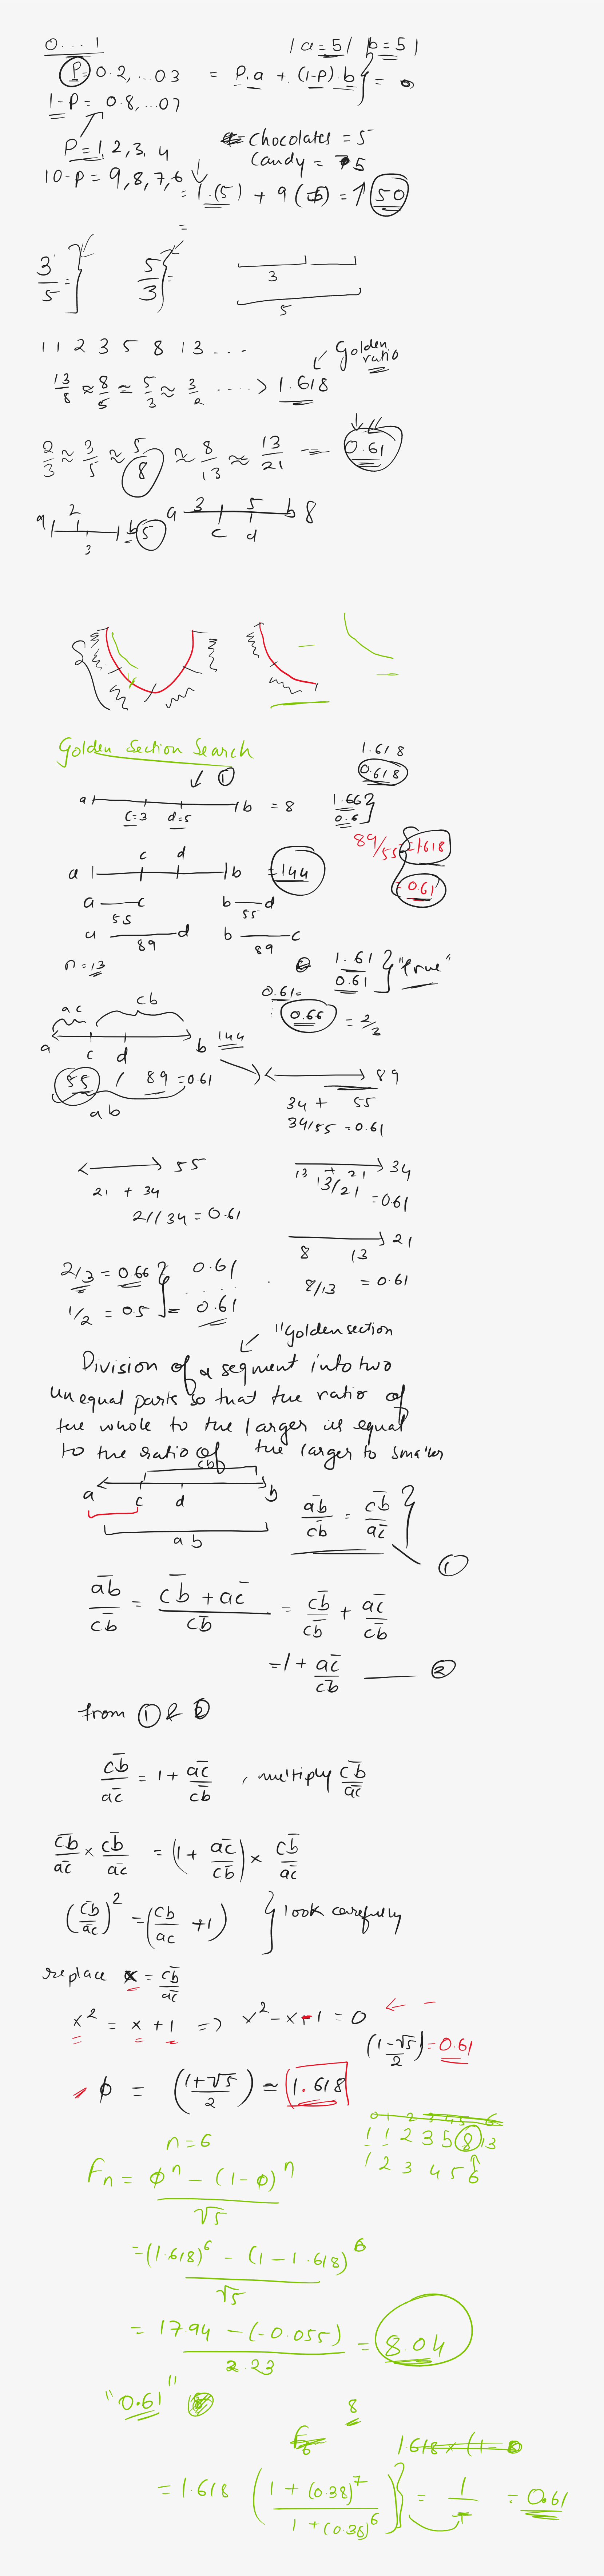 0 . . . . 1
| a = 5 | b = 5 |
P = 0.2, ... 0.3 = P.a + (1-P).b } =
1-P = 0.8, ... 07
P = 1, 2, 3, 4
Chocolates = 5
Candy = 5
10-P = 9, 8, 7, 6
= 1.(5) + 9(5) = ↑ 50
=
3/5 = } 5/3 } =
3
5
1 1 2 3 5 8 13 ...
Golden ratio
13/8 ≈ 8/5 ≈ 5/3 ≈ 3/2 .... > 1.618
2/3 ≈ 3/5 ≈ 5/8 ≈ 8/13 ≈ 13/21 = 0.61
a 2 3 b 5
a 3 5 b 8
c d
Golden Section Search
1
1.618
0.618
a b = 8
c=3 d=5
1.66
0.6 }
89/55 = 1.618
= 0.61
a c d b = 144
a c b d
55 55
a d b c
89 89
n = 13
1.61
0.61 } "True"
0.61 =
0.66 = 2/3
ac cb
a c d b 144
55 / 89 = 0.61
ab
89
34 + 55
34/55 = 0.61
55
21 + 34
21/34 = 0.61
13 + 21 34
13/21 = 0.61
8 13 21
8/13 = 0.61
2/3 = 0.66 } 0.61
1/2 = 0.5 = 0.61
"Golden section
Division of a segment into two
unequal parts so that the ratio of
the whole to the larger is equal
to the ratio of the larger to smaller
cb
a c d b
ab
ab/cb = cb/ac } 1
ab/cb = (cb + ac)/cb = cb/cb + ac/cb
= 1 + ac/cb —— 2
from 1 & 2
cb/ac = 1 + ac/cb , multiply cb/ac
cb/ac × cb/ac = (1 + ac/cb) × cb/ac
(cb/ac)² = (cb/ac + 1) } look carefully
replace x = cb/ac
x² = x + 1 => x² - x - 1 = 0 ← -
(1-√5 / 2) = 0.61
φ = (1+√5 / 2) ≈ 1.618
0 1 2 3 4 5 6
n = 6
1 1 2 3 5 8 13
1 2 3 4 5 6
Fn = φⁿ - (1-φ)ⁿ / √5
= (1.618)⁶ - (1 - 1.618)⁶ / √5
= 17.94 - (-0.055) / 2.23 = 8.04
"0.61"
8
= 1.618 (1 + (0.38)⁷ / 1 + (0.38)⁶) } = 1/ = 0.61